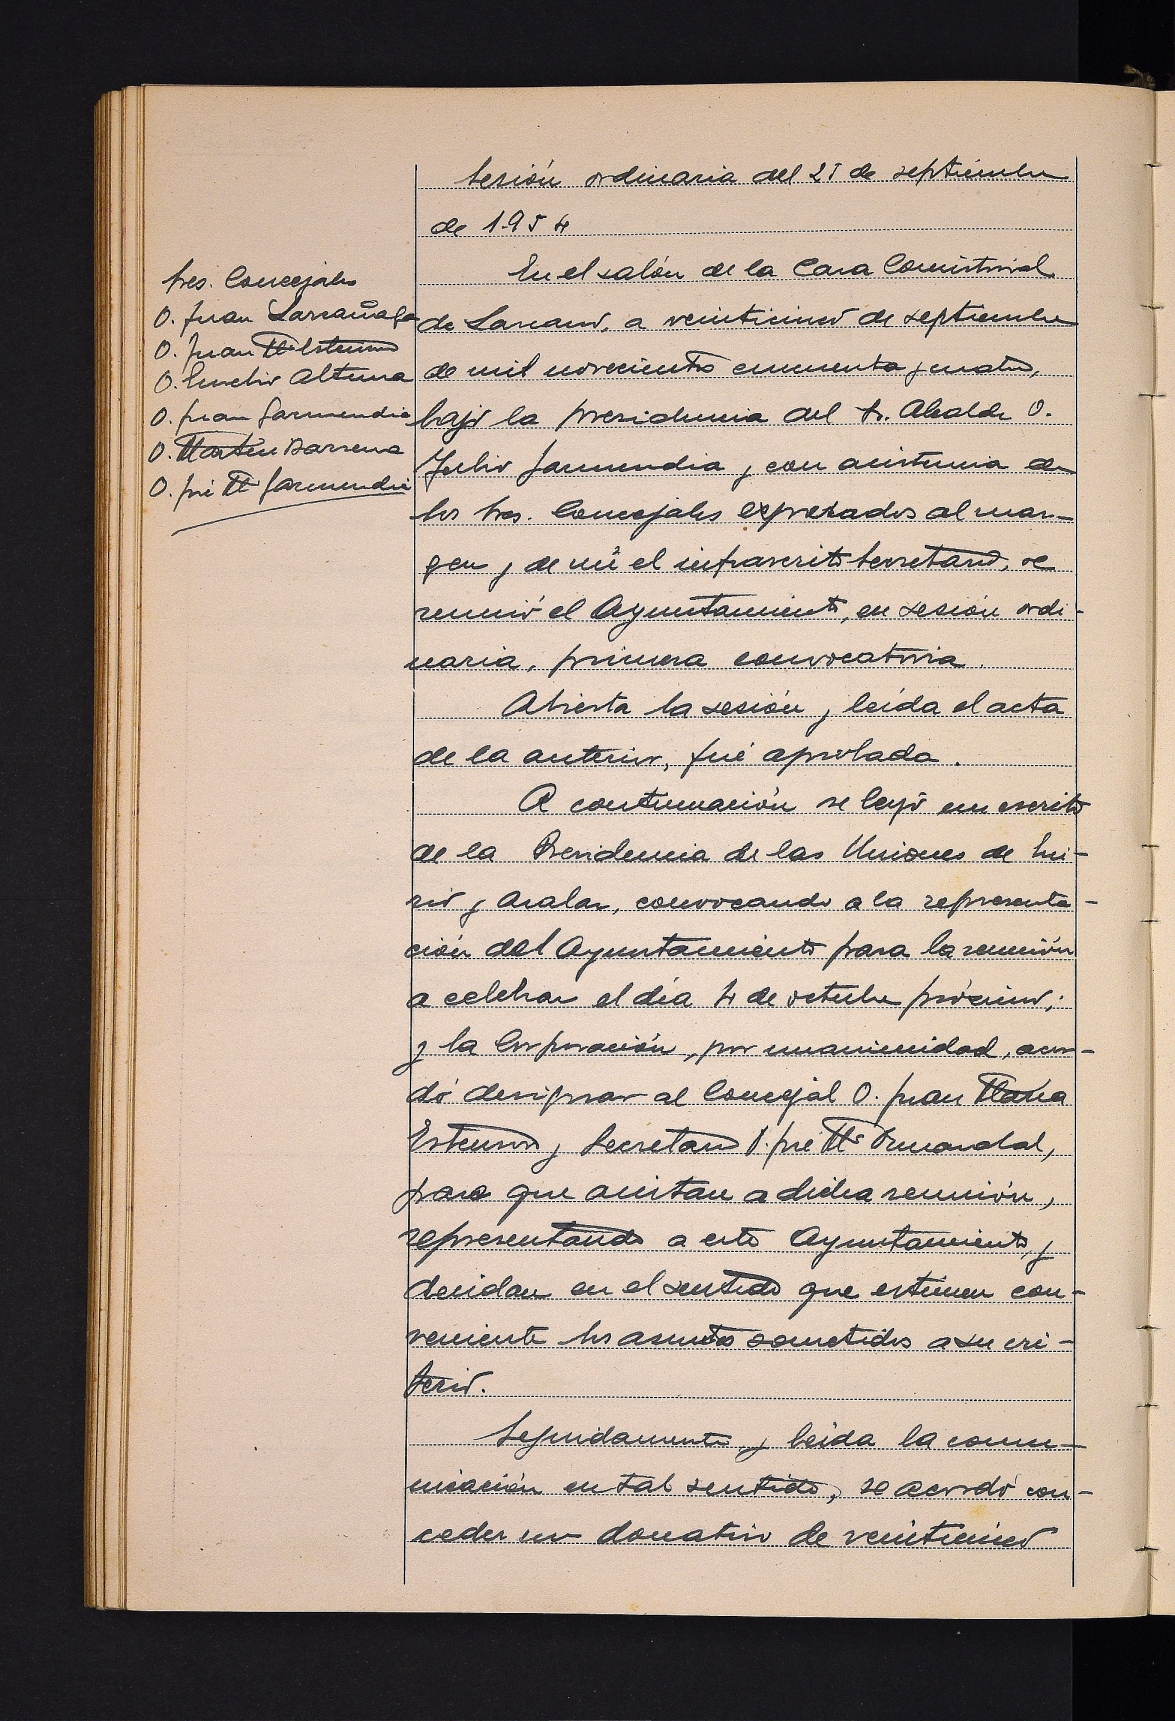 Sesión ordinaria del 25 de septiembre
de 1954
Sres. Concejales
D. Juan Larrañaga
D. Juan Mª Estensoro
D. Altuna
D. Juan Garmendia
D. Martín Barrena
D. José Mª Garmendia
En el salón de la Casa Consistorial
de Lazcano, a veinticinco de septiembre
de mil novecientos cincuenta y cuatro,
bajo la presidencia del Sr. Alcalde D.
Julio Garmendia y con asistencia de
los Sres. Concejales expresados al mar-
gen y de mí el infrascrito Secretario, se
reunió el Ayuntamiento, en sesión ordi-
naria, primera convocatoria.
Abierta la sesión y leída el acta
de la anterior, fué aprobada.
A continuación se leyó un escrito
de la Presidencia de las Uniones de Eni-
rio y Aralar, convocando a la representa-
ción del Ayuntamiento para la reunión
a celebrar el día 4 de octubre próximo;
y la Corporación, por unanimidad, acor-
dó designar al Concejal D. Juan María
Estensoro y Secretario D. José Mª
para que asistan a dicha reunión,
representando a este Ayuntamiento, y
decidan en el sentido que estimen con-
veniente los asuntos sometidos a su cri-
terio.
Seguidamente, y leída la comu-
nicación en tal sentido, se acordó con-
ceder un donativo de veinticinco